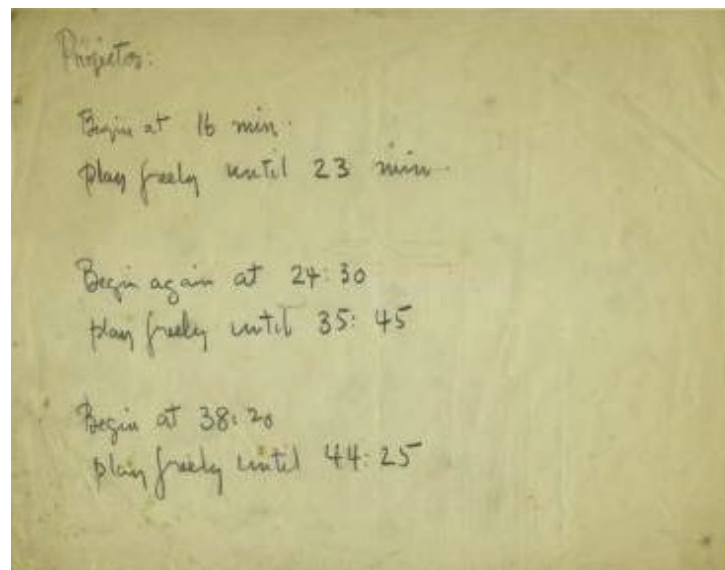 Projector:
Begin at 16 min.
play freely until 23 min.
Begin again at 24:30
play freely until 35:45
Begin at 38:20
play freely until 44:25